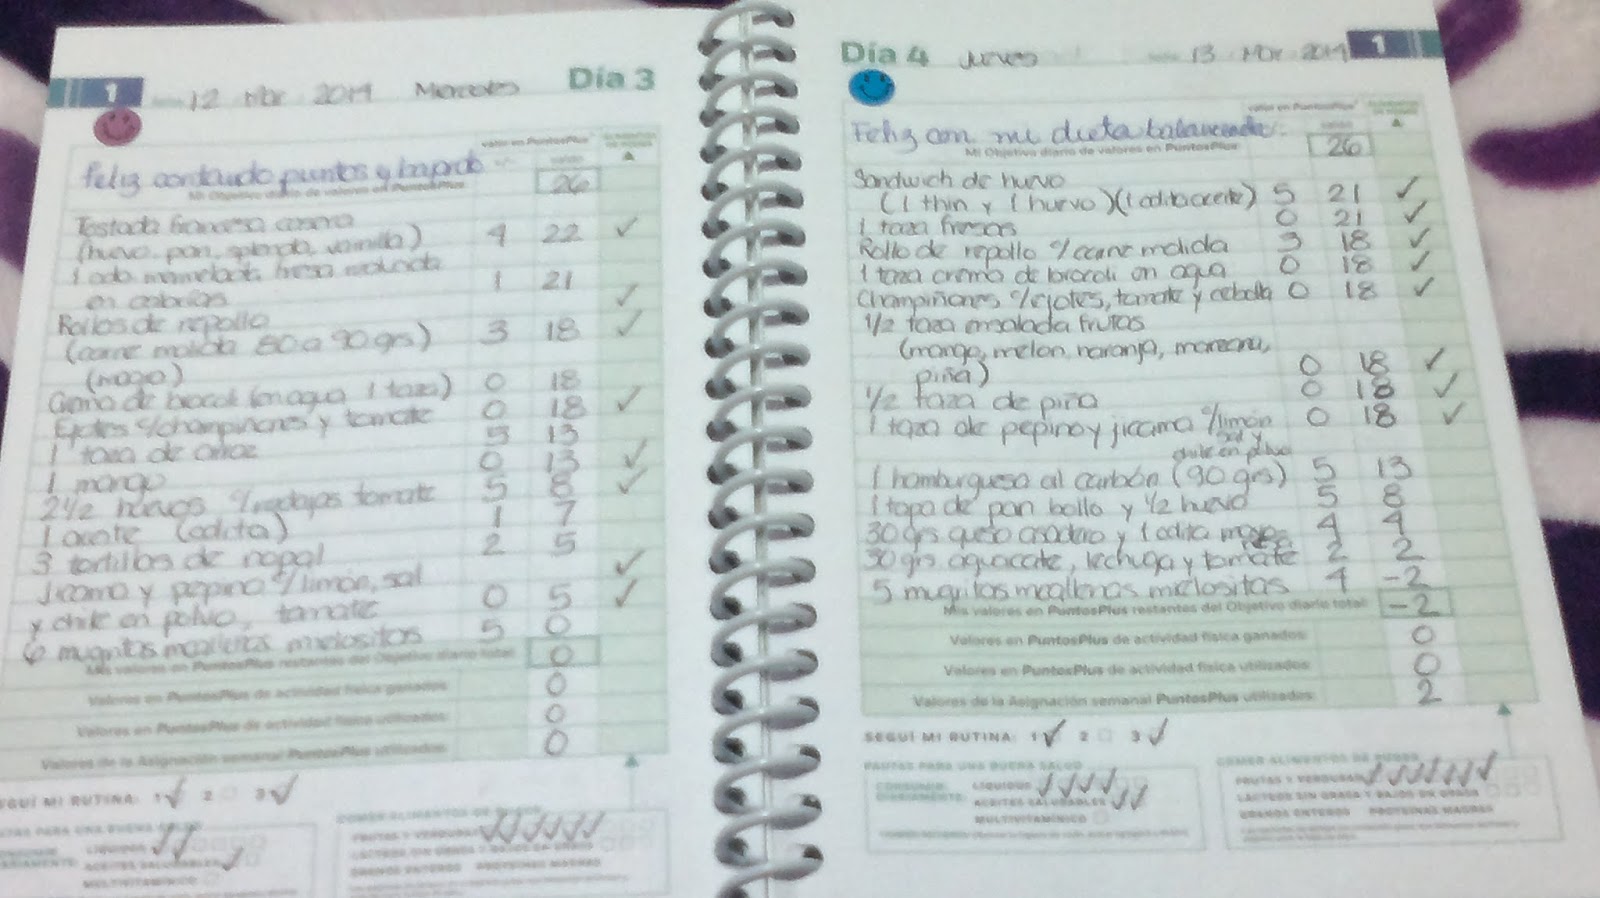 1
12 Mar 2014 Miercoles Día 3
valor en PuntosPlus
Feliz contando puntos y bajando
Mi Objetivo diario de valores en PuntosPlus 26
Tostada francesa casera
(huevo, pan, splenda, vainilla) 4 22 ✓
1 cda mermelada fresa reducida 1 21
en calorías ✓
Rollos de repollo 3 18 ✓
(carne molida 80 a 90 grs)
Crema de brocoli (en agua 1 taza) 0 18
Ejotes c/champiñones y tomate 0 18 ✓
1 taza de arroz 5 13
1 mango 0 13 ✓
2 1/2 huevos c/rodajas tomate 5 8 ✓
1 aceite (cdita) 1 7
3 tortillas de nopal 2 5
Jicama y pepino c/limón, sal ✓
y chile en polvo, tomate 0 5 ✓
6 muqritos 5 0
Mis valores en PuntosPlus restantes del Objetivo diario total: 0
Valores en PuntosPlus de actividad física ganados: 0
Valores en PuntosPlus de actividad física utilizados: 0
Valores de la Asignación semanal PuntosPlus utilizados: 0
SEGUÍ MI RUTINA: 1 ✓ 2 3 ✓
LÍQUIDOS ✓✓
ACEITES SALUDABLES ✓
MULTIVITAMÍNICO
FRUTAS Y VERDURAS ✓✓✓✓✓✓
LÁCTEOS SIN GRASA Y BAJOS EN GRASA
GRANOS ENTEROS PROTEÍNAS MAGRAS
Día 4 Jueves 13 Mar 2014 1
valor en PuntosPlus
Feliz con mi dieta balanceada
Mi Objetivo diario de valores en PuntosPlus: 26
Sandwich de huevo
(1 thin y 1 huevo) (1 cdita aceite) 5 21 ✓
1 taza fresas 0 21 ✓
Rollo de repollo c/carne molida 3 18 ✓
1 taza crema de brocoli en agua 0 18 ✓
Champiñones c/ejotes, tomate y cebolla 0 18 ✓
1/2 taza ensalada frutas
(mango, melon, naranja, manzana,
piña) 0 18 ✓
1/2 taza de piña 0 18 ✓
1 taza de pepino y jicama c/limón 0 18 ✓
sal y
chile en polvo
1 hamburguesa al carbón (90 grs) 5 13
1 tapa de pan bollo y 1/2 huevo 5 8
30 grs queso asadero y 1 cdita 4 4
30 grs aguacate, lechuga y tomate 2 2
5 muqritos 4 -2
Mis valores en PuntosPlus restantes del Objetivo diario total: -2
Valores en PuntosPlus de actividad física ganados: 0
Valores en PuntosPlus de actividad física utilizados: 0
Valores de la Asignación semanal PuntosPlus utilizados: 2
SEGUÍ MI RUTINA: 1 ✓ 2 3 ✓
PAUTAS PARA UNA BUENA SALUD
CONSUMIR DIARIAMENTE:
LÍQUIDOS ✓✓✓✓
ACEITES SALUDABLES ✓✓
MULTIVITAMÍNICO
COMER ALIMENTOS DE PODER
FRUTAS Y VERDURAS ✓✓✓✓✓✓
LÁCTEOS SIN GRASA Y BAJOS EN GRASA
GRANOS ENTEROS PROTEÍNAS MAGRAS